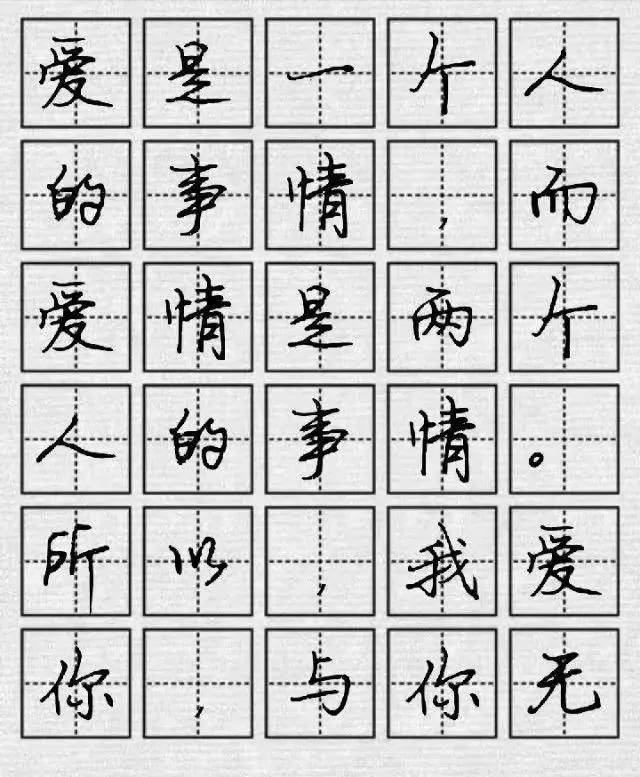 爱是一个人
的事情，而
爱情是两个
人的事情。
所以，我爱
你，与你无